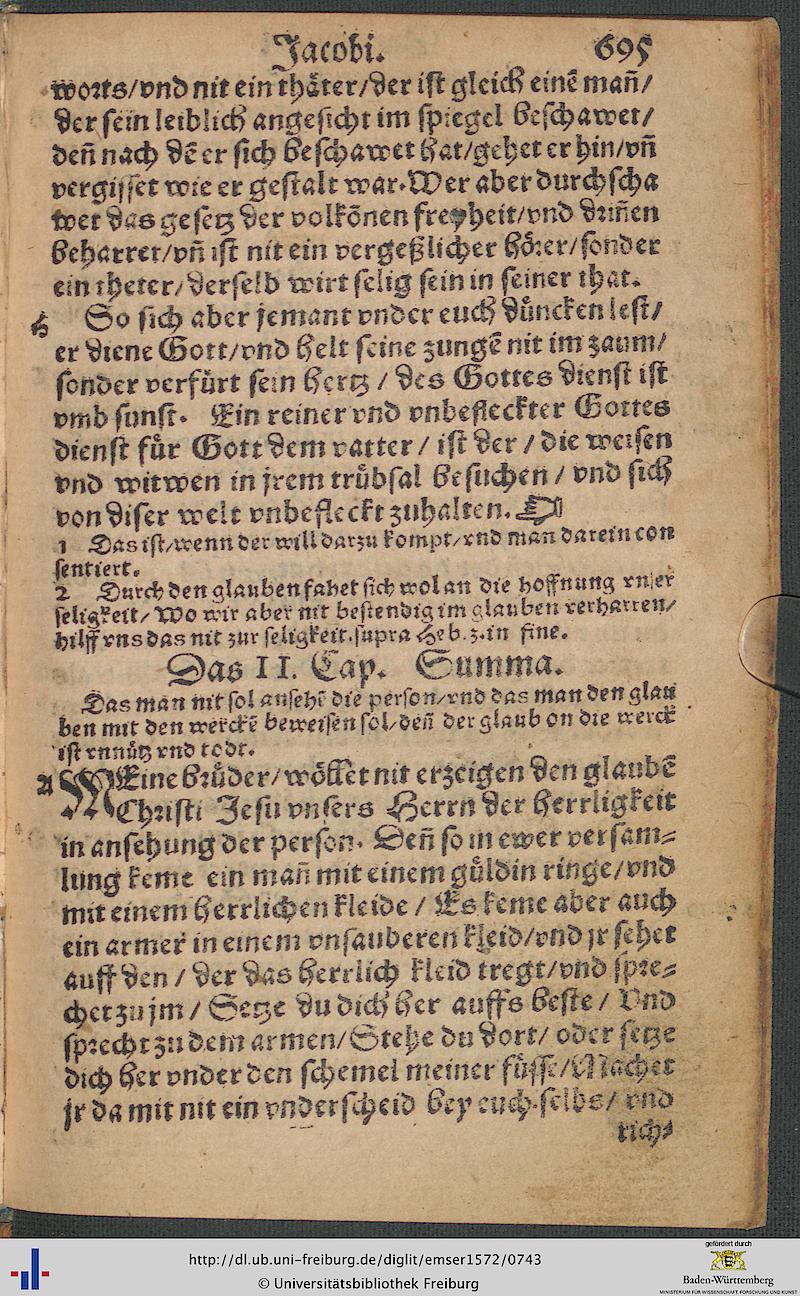 Jacobi. 695
worts/vnd nit ein thäter/der ist gleich einē mañ/
der sein leiblich angesicht im spiegel beschawet/
deñ nach dē er sich beschawet hat/gehet er hin/vñ
vergisset wie er gestalt war. Wer aber durchscha
wet das gesetz der volkōnen freyheit/vnd driñen
beharret/vñ ist nit ein vergeßlicher hörer/sonder
ein theter/derselb wirt selig sein in seiner that.
So sich aber jemant vnder euch düncken lest/
er diene Gott/vnd helt seine zungē nit im zaum/
sonder verfürt sein hertz / des Gottes dienst ist
vmb sunst. Ein reiner vnd vnbefleckter Gottes
dienst für Gott dem vatter / ist der / die weisen
vnd witwen in jrem trübsal besuchen / vnd sich
von diser welt vnbefleckt zuhalten.
1 Das ist/wenn der will darzu kompt/vnd man darein con
sentiert.
2 Durch den glauben fahet sich wol an die hoffnung vnser
seligkeit/ Wo wir aber nit bestendig im glauben verharren/
hilff vns das nit zur seligkeit. supra Heb. 3. in fine.
Das II. Cap. Summa.
Das man nit sol ansehē die person/vnd das man den glau
ben mit den werckē beweisen sol/deñ der glaub on die werck
ist vnnütz vnd todt.
A MEine brüder/wöllet nit erzeigen den glaubē
Christi Jesu vnsers Herrn der herrligkeit
in ansehung der person. Deñ so in ewer versam-
lung keme ein mañ mit einem güldin ringe/vnd
mit einem herrlichen kleide / Es keme aber auch
ein armer in einem vnsauberen kleid/vnd jr sehet
auff den / der das herrlich kleid tregt/vnd spre-
chet zu jm / Setze du dich her auffs beste / Vnd
sprecht zu dem armen/Stehe du dort/ oder setze
dich her vnder den schemel meiner füsse/Machet
jr da mit nit ein vnderscheid bey euch selbs/ vnd
rich-
http://dl.ub.uni-freiburg.de/diglit/emser1572/0743
© Universitätsbibliothek Freiburg
gefördert durch
Baden-Württemberg
MINISTERIUM FÜR WISSENSCHAFT, FORSCHUNG UND KUNST